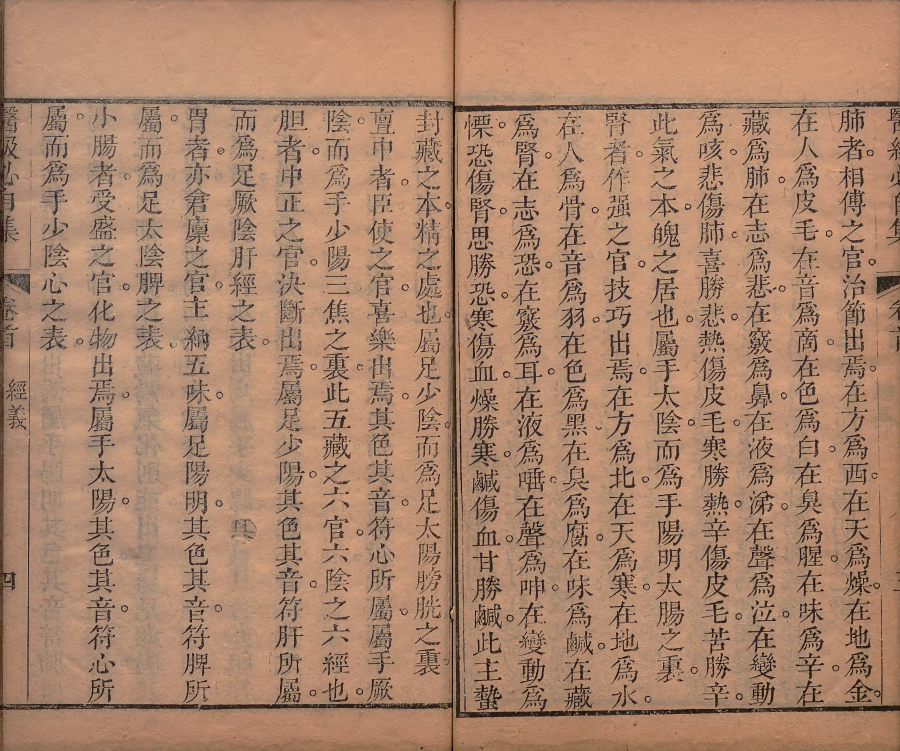 肺者相傅之官治節出焉在方爲西在天爲燥在地爲金
在人爲皮毛在音爲商在色爲白在臭爲腥在味爲辛在
藏爲肺在志爲悲在竅爲鼻在液爲涕在聲爲泣在變動
爲咳悲傷肺喜勝悲熱傷皮毛寒勝熱辛傷皮毛苦勝辛
此氣之本魄之居也屬手太陰而爲手陽明大腸之裏
腎者作强之官技巧出焉在方爲北在天爲寒在地爲水
在人爲骨在音爲羽在色爲黑在臭爲腐在味爲鹹在藏
爲腎在志爲恐在竅爲耳在液爲唾在聲爲呻在變動爲
慄恐傷腎思勝恐寒傷血燥勝寒鹹傷血甘勝鹹此主蟄
封藏之本精之處也屬足少陰而爲足太陽膀胱之裏
亶中者臣使之官喜樂出焉其色其音符心所屬屬手厥
陰而爲手少陽三焦之裏此五藏之六官六陰之六經也
胆者中正之官決斷出焉屬足少陽其色其音符肝所屬
而爲足厥陰肝經之表
胃者亦倉廩之官主納五味屬足陽明其色其音符脾所
屬而爲足太陰脾之表
小腸者受盛之官化物出焉屬手太陽其色其音符心所
屬而爲手少陰心之表
卷首
經義
四